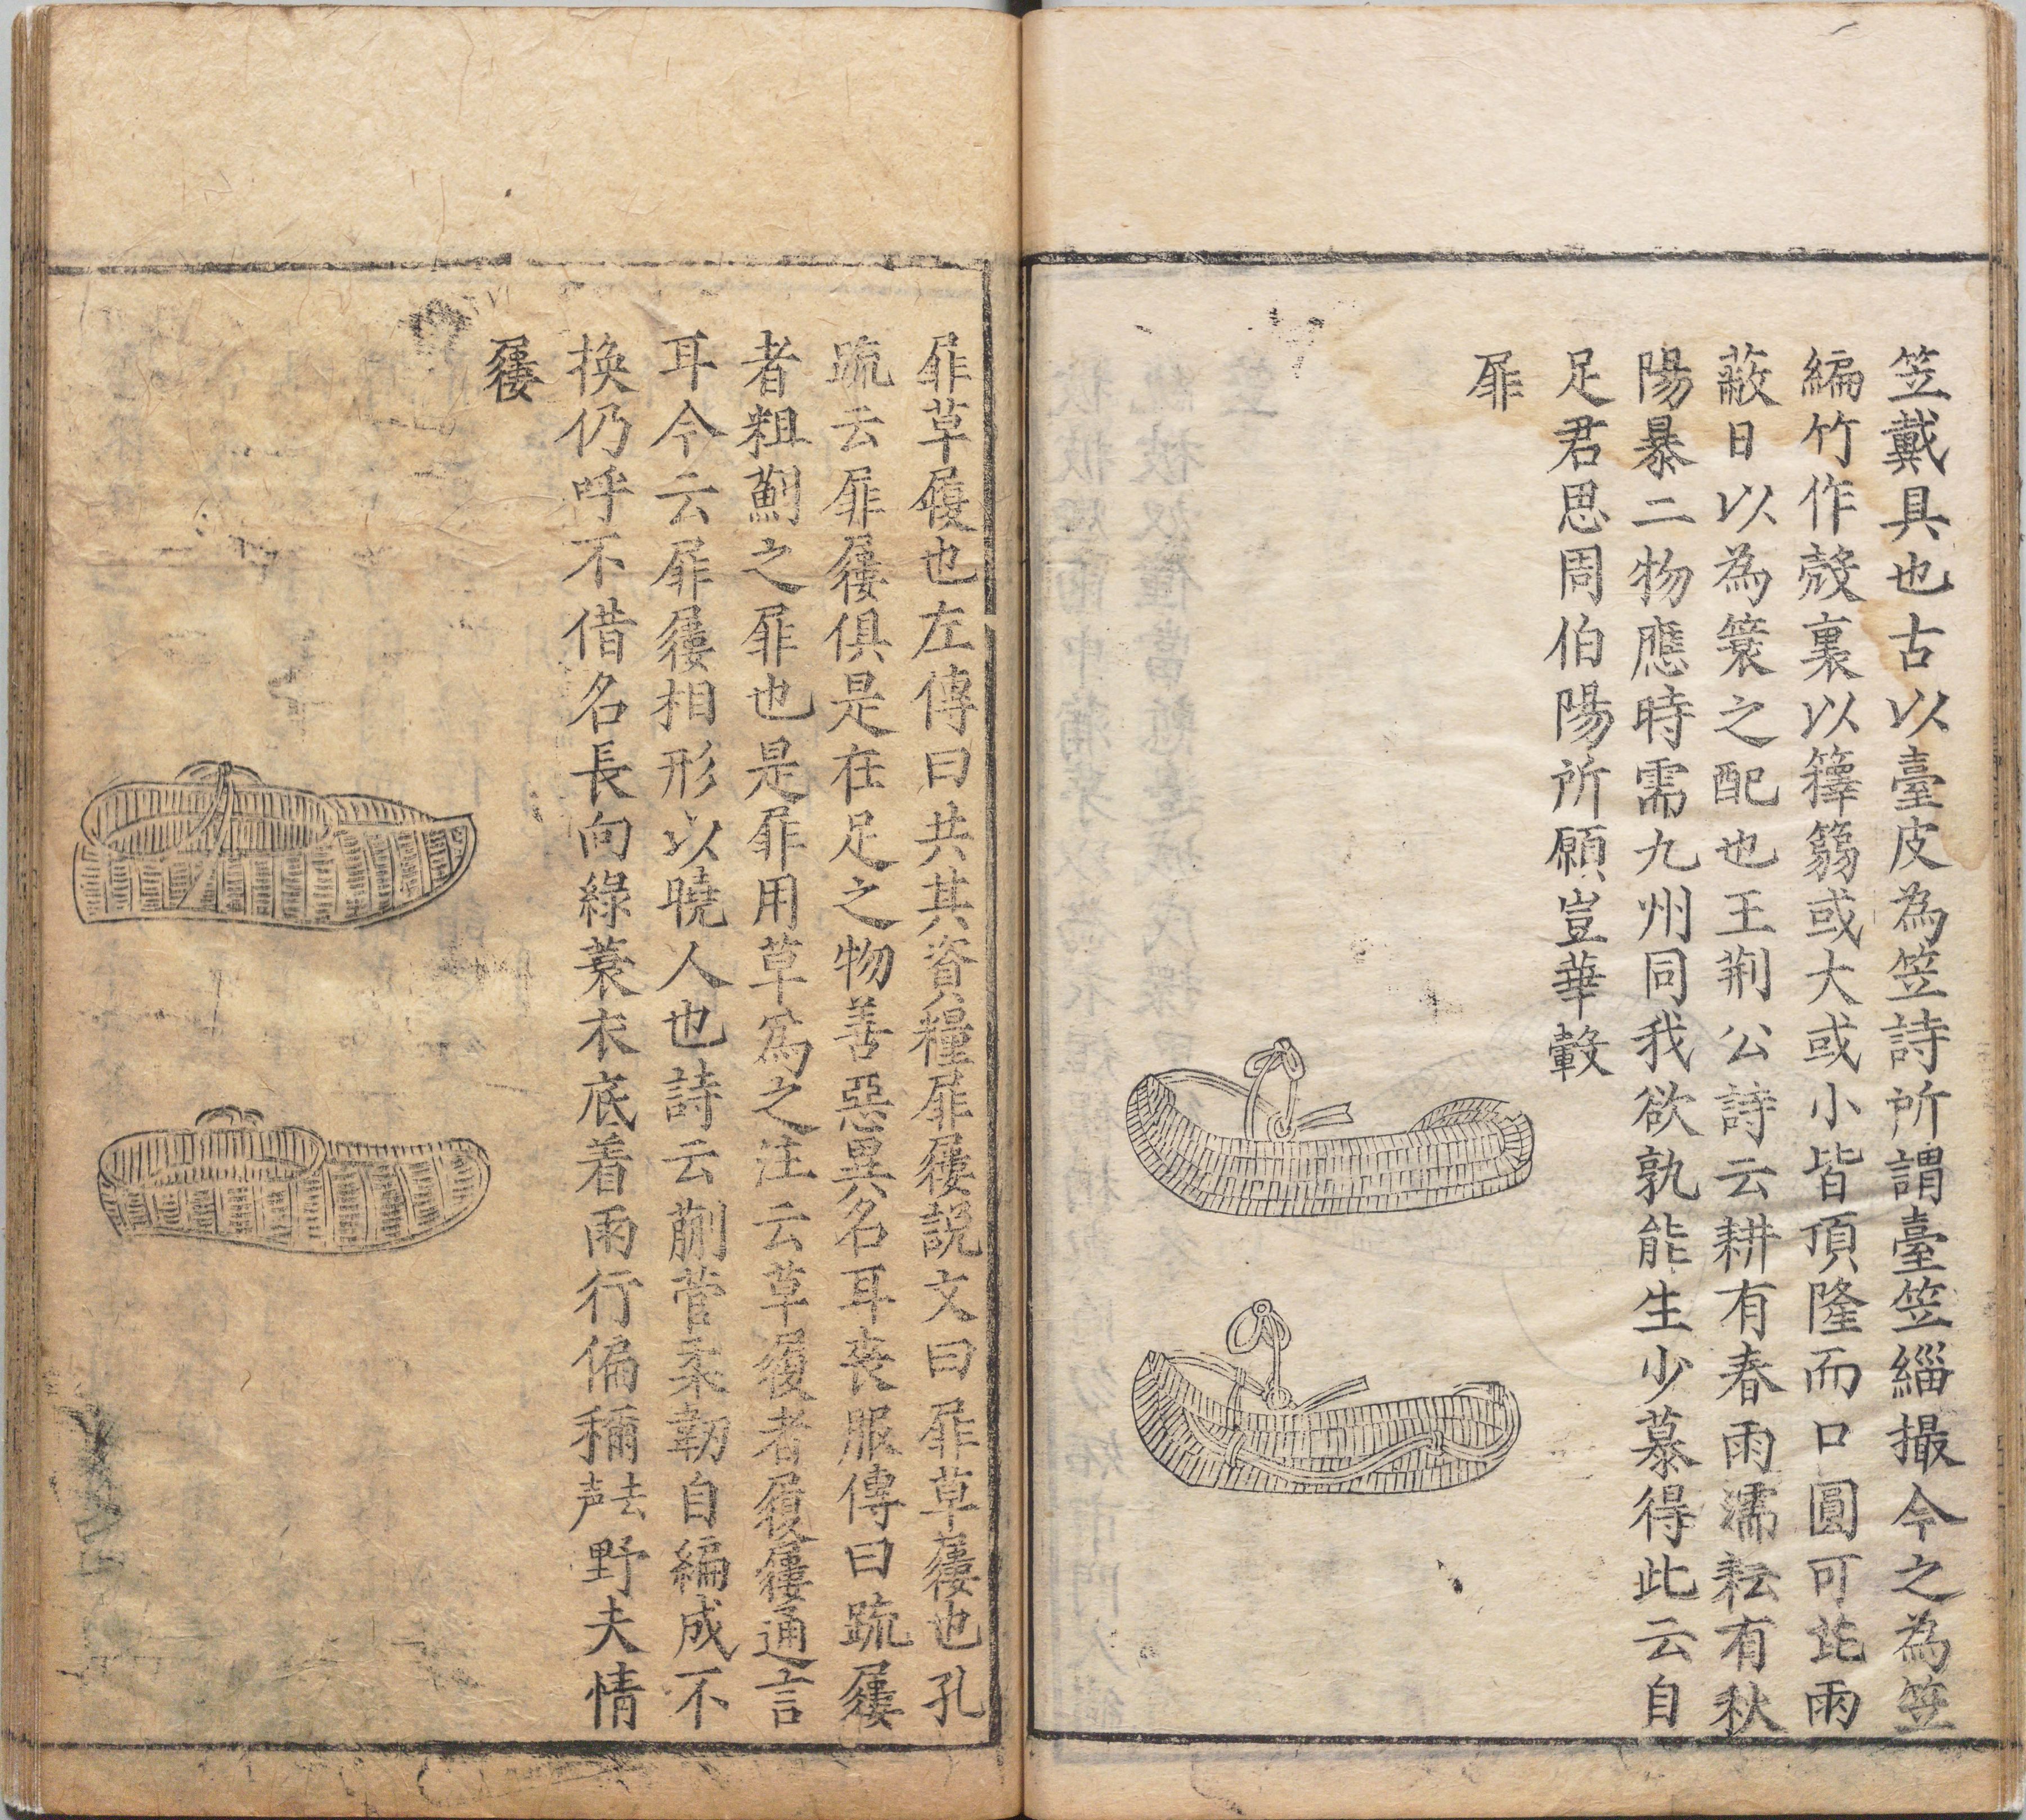 笠戴具也古以臺皮為笠詩所謂臺笠緇撮今之為笠
編竹作殼裏以籜篛或大或小皆頂隆而口圓可芘雨
蔽日以為簑之配也王荆公詩云耕有春雨濡耘有秋
陽暴二物應時需九州同我欲孰能生少慕得此云自
足君思周伯陽所願豈華轂
屝
屝草履也左傳曰共其資糧屝屨說文曰屝草屨也孔
疏云屝屨俱是在足之物善惡異名耳喪服傳曰疏屨
者粗藨之屝也是屝用草為之注云草履者履屨通言
耳今云屝屨相形以曉人也詩云蒯菅柔韌自編成不
換仍呼不借名長向綠蓑衣底着雨行偏稱野夫情
屨